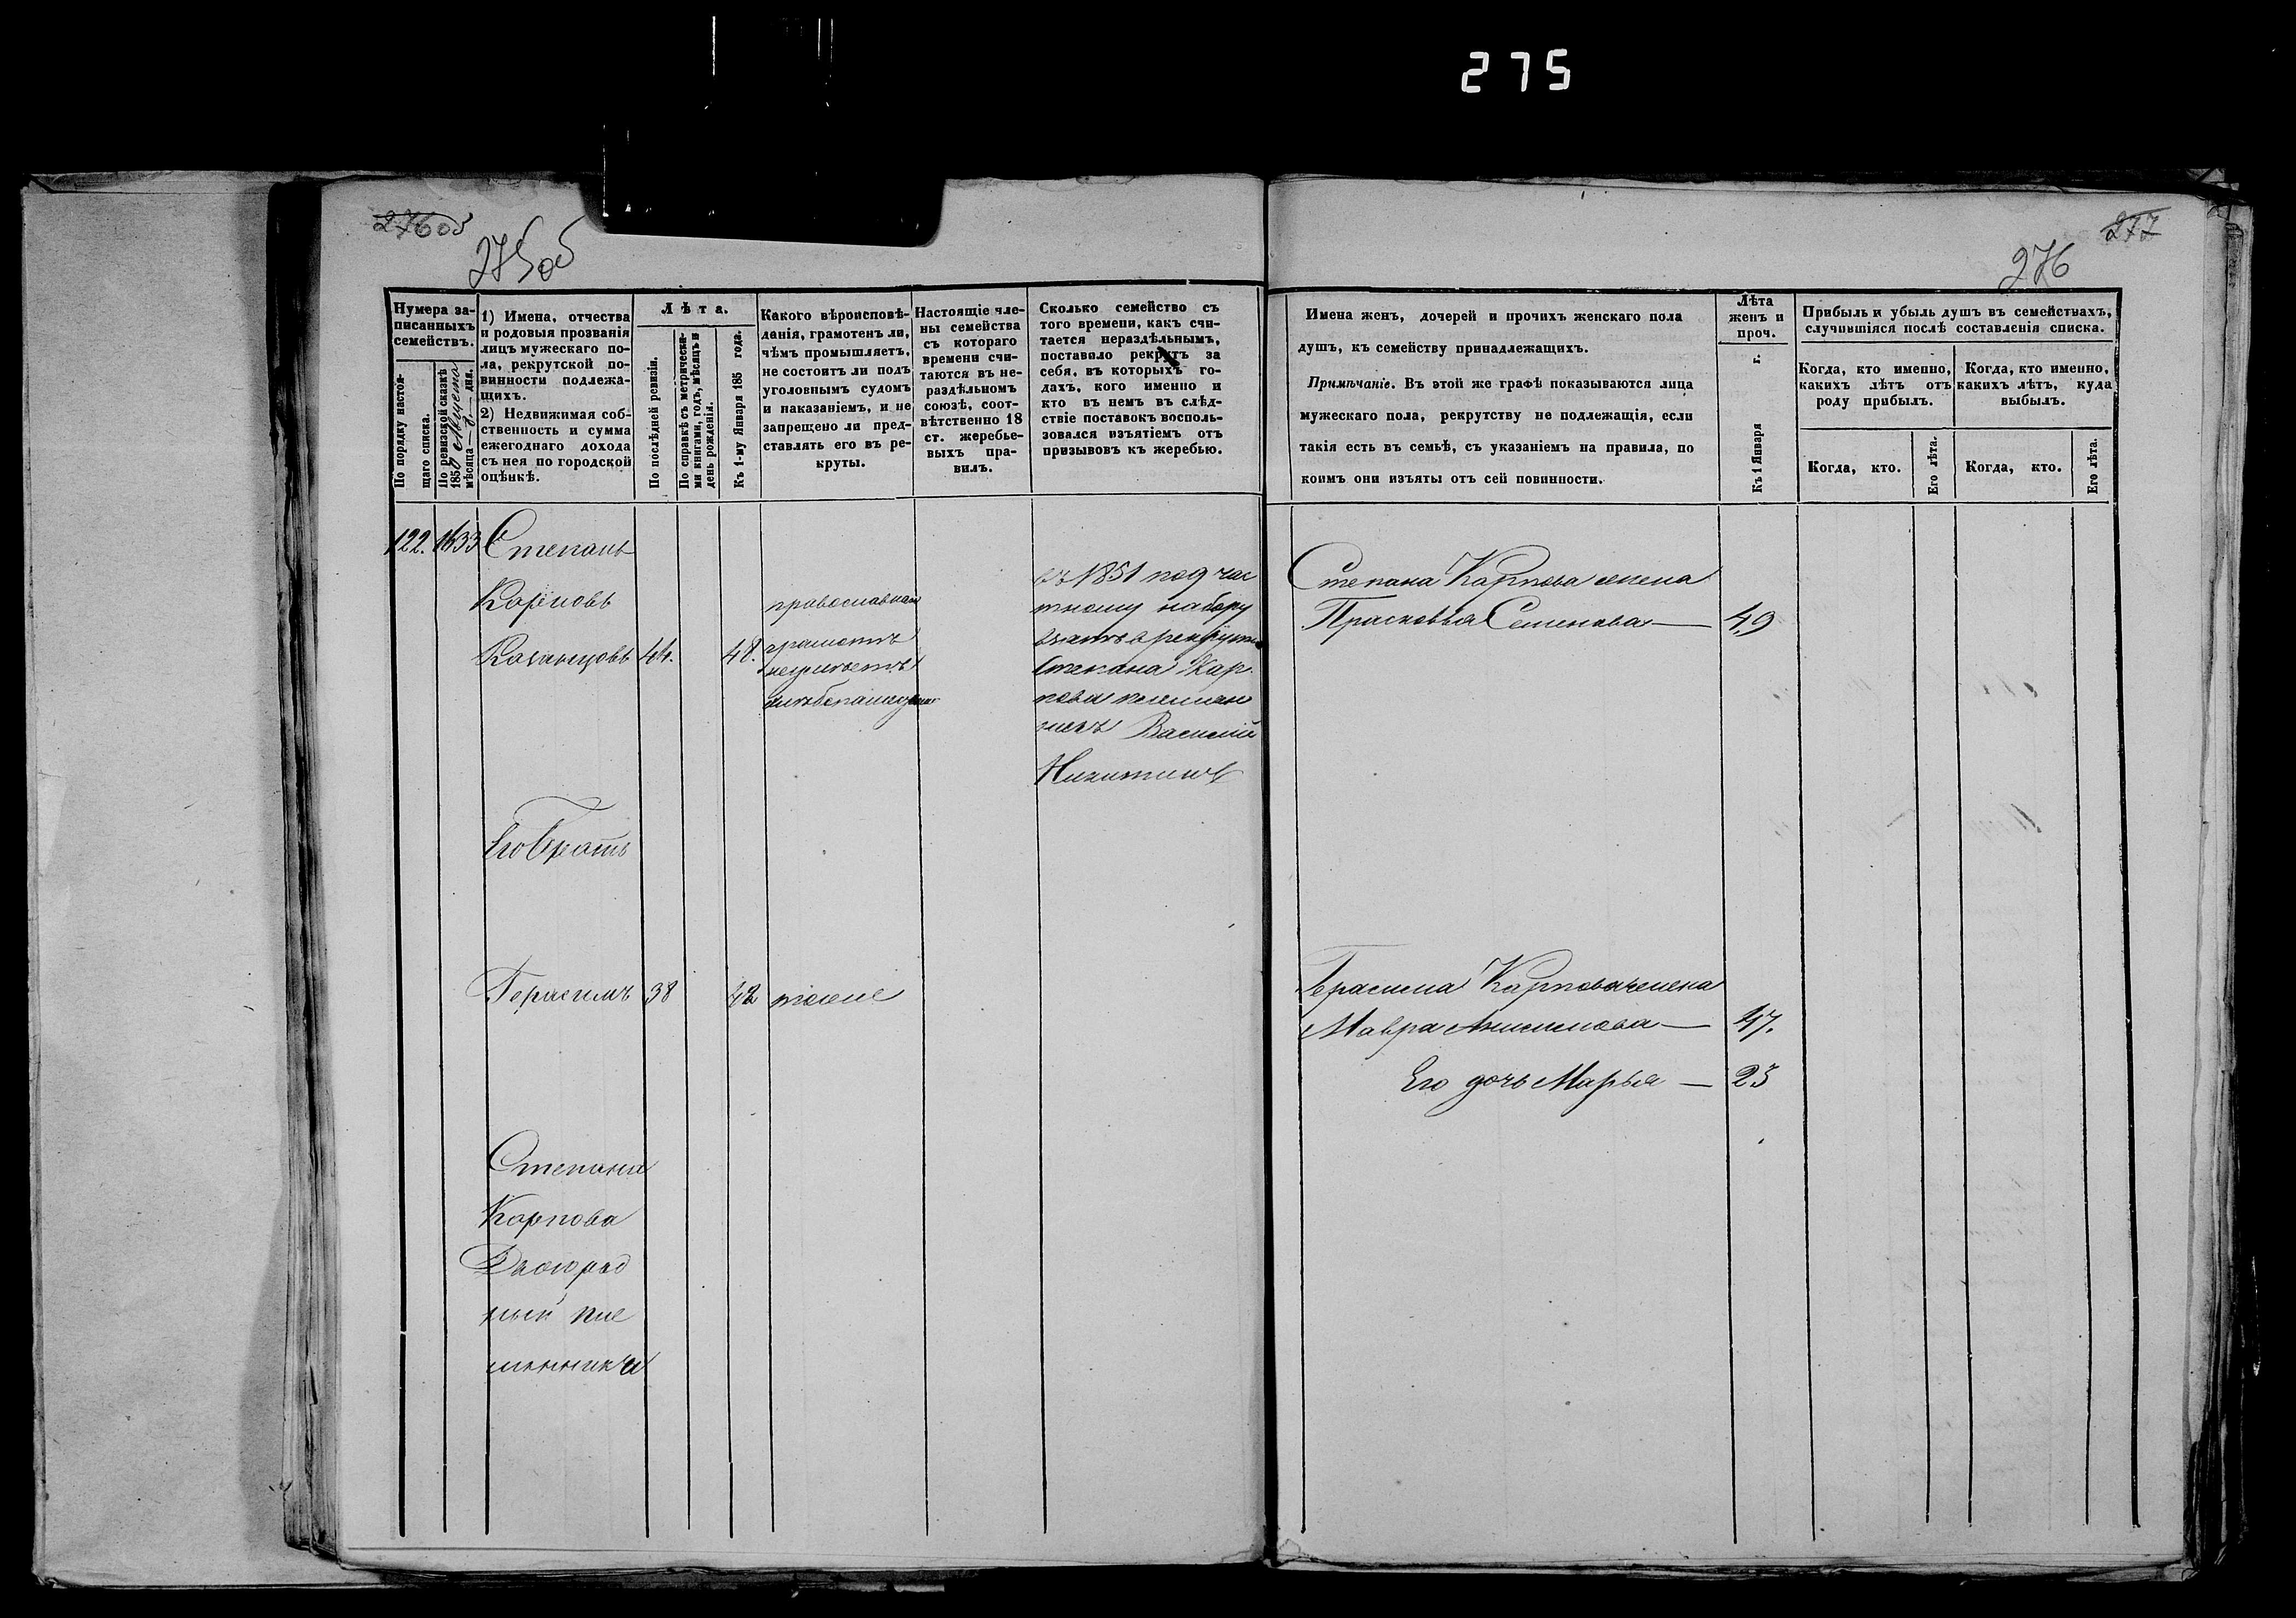 275
276об
275об
Нумера за-
писанныхъ
семействъ.
По порядку настоя-
щаго списка.
По ревизской сказкѣ
1850 Августа
мѣсяца — дня.
1) Имена, отчества
и родовыя прозванія
лицъ мужескаго по-
ла, рекрутской по-
винности подлежа-
щихъ.
2) Недвижимая соб-
ственность и сумма
ежегоднаго дохода
съ нея по городской
оцѣнкѣ.
Лѣта.
По послѣдней ревизіи.
По справкѣ съ метрически-
ми книгами, годъ, мѣсяцъ и
день рожденія.
Къ 1-му Января 185 года.
Какого вѣроисповѣ-
данія, грамотенъ ли,
чѣмъ промышляетъ,
не состоитъ ли подъ
уголовнымъ судомъ
и наказаніемъ, и не
запрещено ли пред-
ставлять его въ ре-
круты.
Настоящіе чле-
ны семейства
съ котораго
времени счи-
таются въ не-
раздѣльномъ
союзѣ, соот-
вѣтственно 18
ст. жеребье-
выхъ пра-
вилъ.
Сколько семейство съ
того времени, какъ счи-
тается нераздѣльнымъ,
поставило рекрутъ за
себя, въ которыхъ го-
дахъ, кого именно и
кто въ немъ въ слѣд-
ствіе поставокъ восполь-
зовался изъятіемъ отъ
призывовъ къ жеребью.
122. 1633 Степанъ
Карповъ
Казанцовъ 44. 48.
православнаго
грамотѣ
неумѣетъ
хлѣбопашествомъ
въ 1851 под час
тному набору
взятъ в рекруты
Степана Кар
пова племян
никъ Василій
Никитинъ
Его Братъ
Герасимъ 38 42 тоже
Степана
Карпова
Двоюрод
ный пле
мянники
277
276
Имена женъ, дочерей и прочихъ женскаго пола
душъ, къ семейству принадлежащихъ.
Примѣчаніе. Въ этой же графѣ показываются лица
мужескаго пола, рекрутству не подлежащія, если
такія есть въ семьѣ, съ указаніемъ на правила, по
коимъ они изъяты отъ сей повинности.
Лѣта
женъ и
проч.
Къ 1 Января г.
Прибыль и убыль душъ въ семействахъ,
случившіяся послѣ составленія списка.
Когда, кто именно,
какихъ лѣтъ отъ
роду прибылъ.
Когда, кто именно,
какихъ лѣтъ, куда
выбылъ.
Когда, кто.
Его лѣта.
Когда, кто.
Его лѣта.
Степана Карпова жена
Прасковья Семенова — 49
Герасима Карпова жена
Мавра Анисимова — 47.
Его дочь Марья — 23